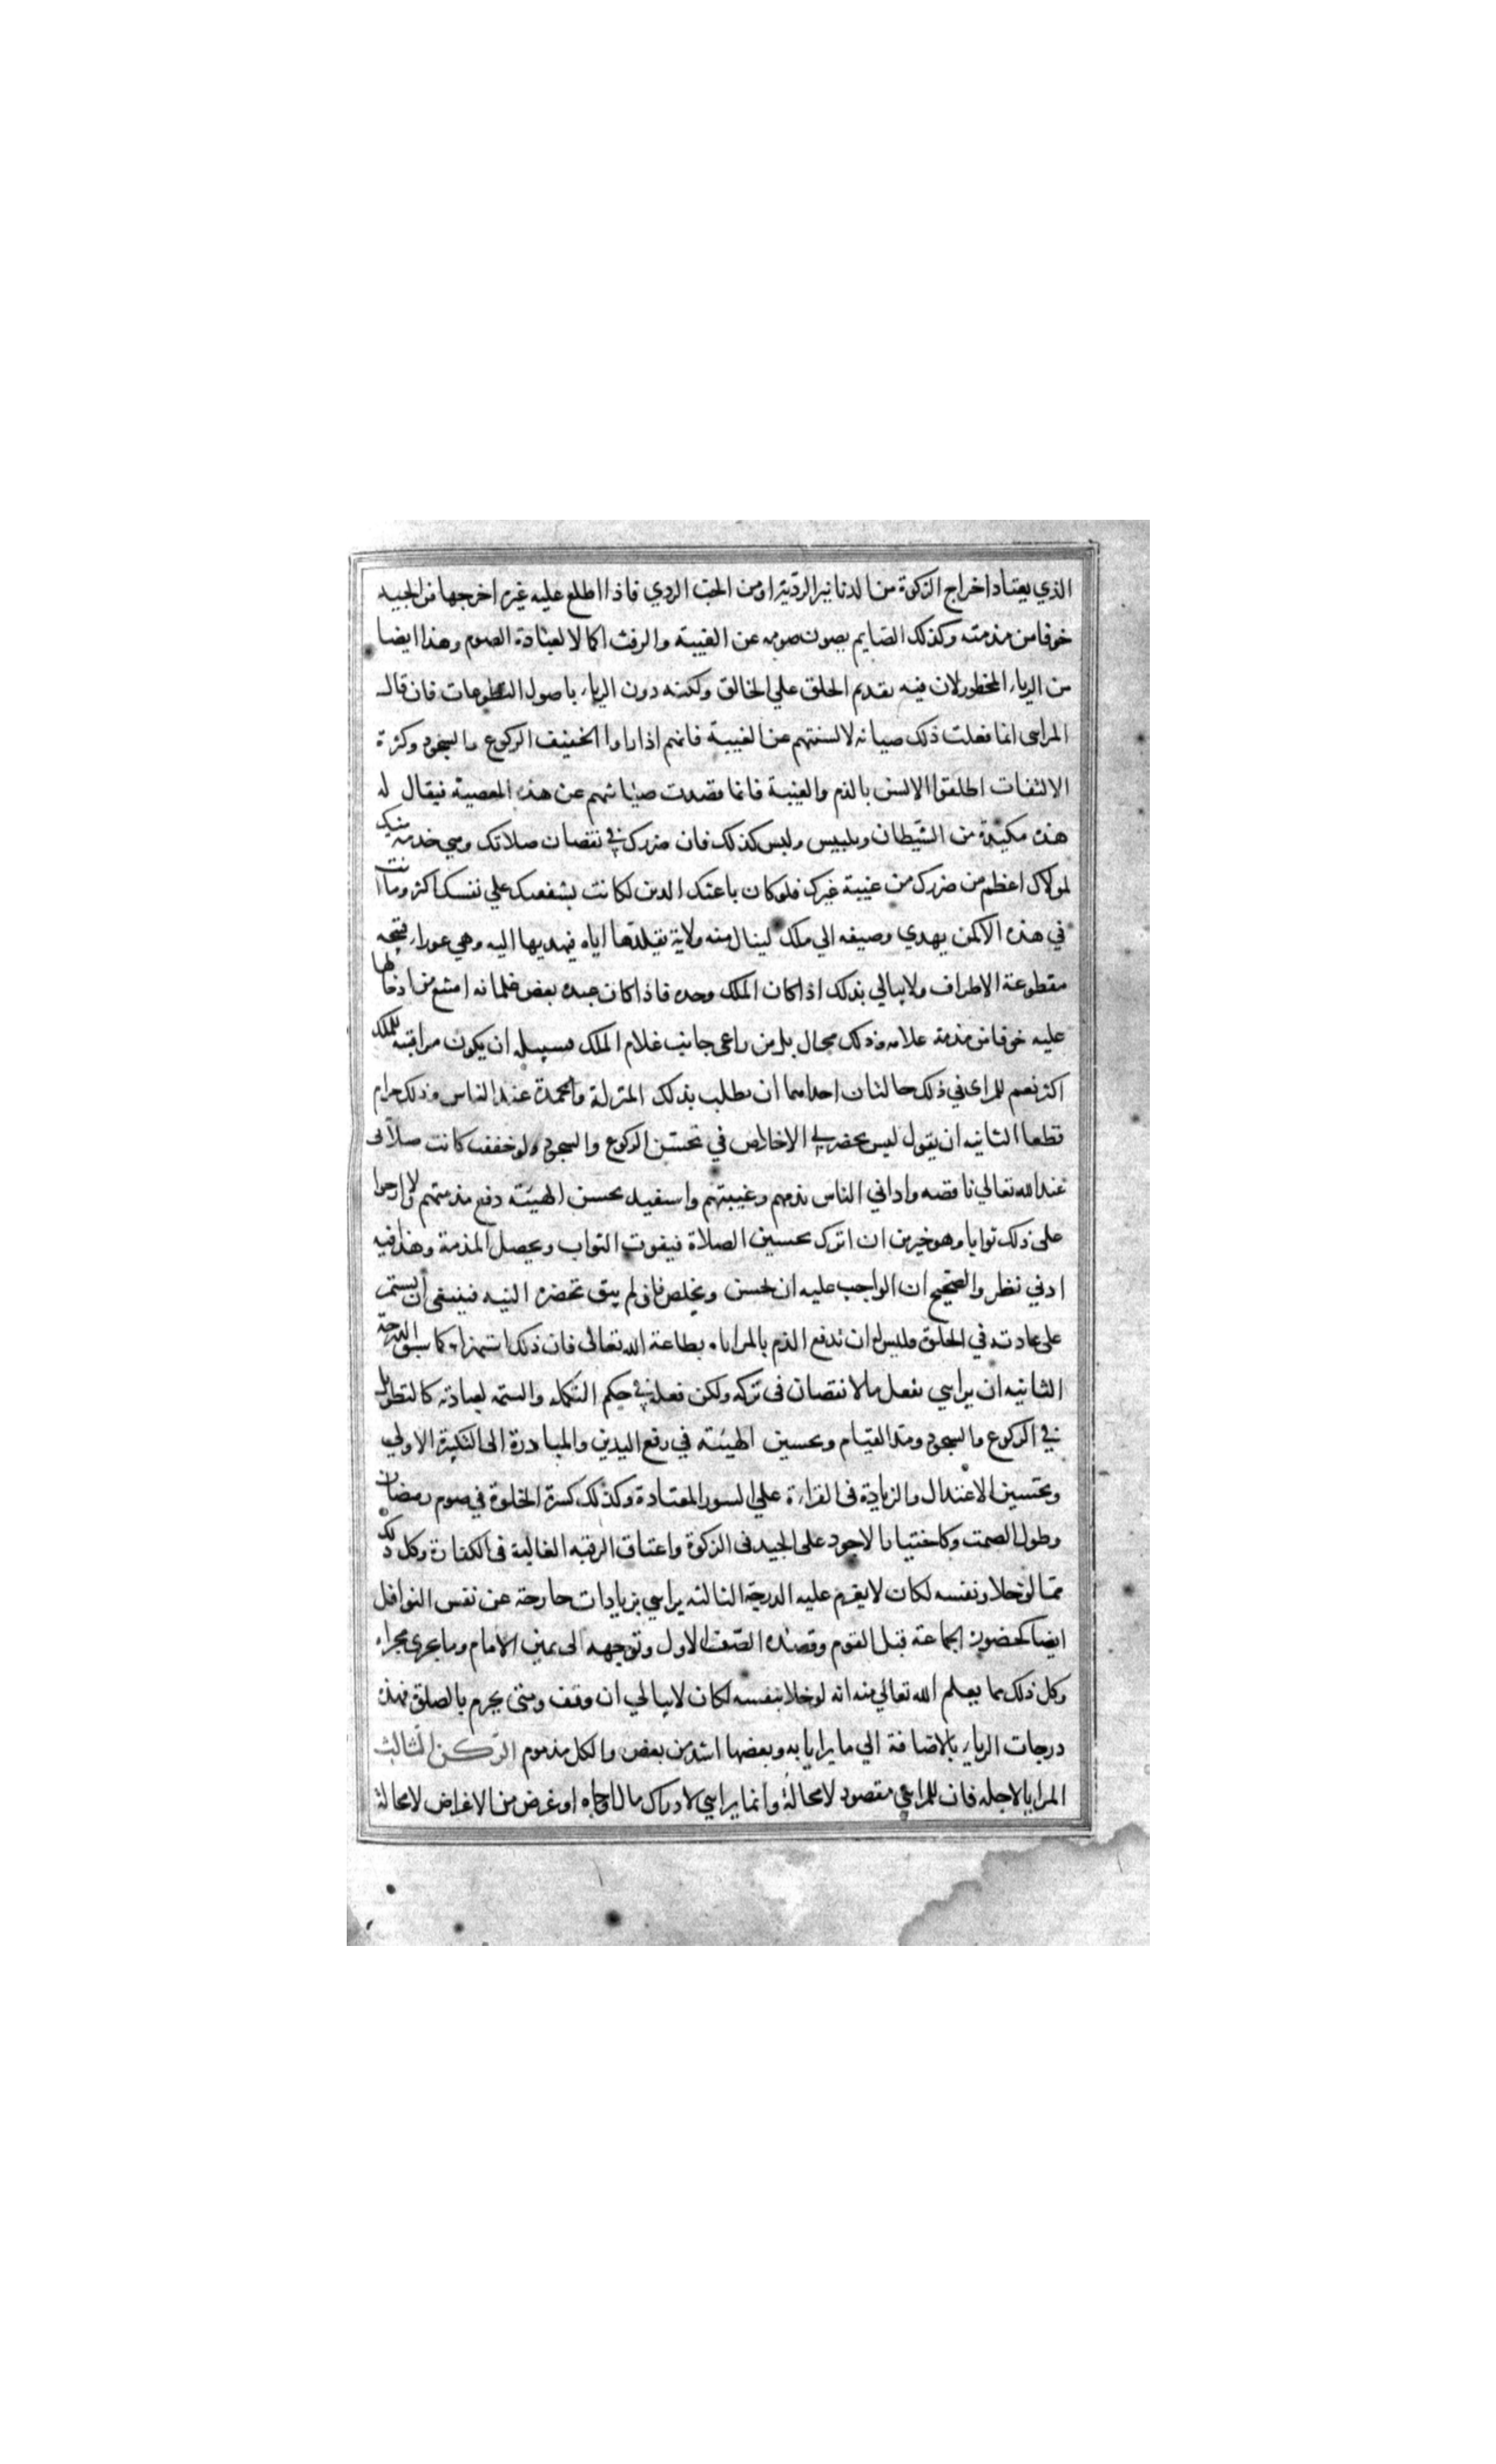 الذي يعتاد اخراج الزكوة من الدنانير الرديّة او من الحبّ الردي فاذا اطلع عليه غيره اخرجها من الجيد
خوفا من مذمته وكذلك الصّايم يصون صومه عن الغيبة والرفث اكمالا لعبادة الصوم وهذا ايضا
من الرياء المحظور لان فيه تقديم الخلق علي الخالق ولكنه دون الرياء باصول التطوعات فان قال
المراىى انما فعلت ذلك صيانه لالسنتهم عن الغيبة فانهم اذا راوا الخفيف الركوع والسجود وكثرة
الالتفات اطلقوا الالسن بالذم والغيبة فانما قصدت صيانتهم عن هذه المعصية فيقال له
هذه مكيدة من الشيطان وتلبيس وليس كذلك فان ضررك في نقصان صلاتك وهي خدمة منك
لمولاك اعظم من ضررك من غيبة غيرك فلو كان باعثك الدين لكانت شفقتك علي نفسك اكثر وما انت
في هذه الا كمن يهدي وصيفه الي ملك لينال منه ولاية يتقلدها اياه فيهديها اليه وهي عوراء قبيحه
مقطوعة الاطراف ولا يبالي بذلك اذا كان الملك وحده فاذا كان عنده بعض غلمانه امتنع من ادخالها
عليه خوفا من مذمة غلامه وذلك محال بل من راعى جانب غلام الملك فسبيله ان يكون مراقبته للملك
اكثر نعم للمراىى في ذلك حالتان احداهما ان يطلب بذلك المنزلة والمحمدة عند الناس وذلك حرام
قطعا الثانيه ان يقول ليس يحضرني الاخلاص في تحسين الركوع والسجود ولو خففت كانت صلاتى
عند الله تعالي ناقصه واذاني الناس بذمهم وغيبتهم واستفيد بحسن الهيئة دفع مذمتهم ولا ارجوا
على ذلك ثوابا وهو خير من ان اترك تحسين الصلاة فيفوت الثواب ويحصل المذمة وهذا فيه
ادني نظر والصحيح ان الواجب عليه ان يحسن ويخلص فان لم يبق تحضره النيه فينبغى ان يستمر
على عادته في الخلق وليس له ان يدفع الذم بالمراياه بطاعة الله تعالى فان ذلك استهزاء كما سبق الدرجة
الثانيه ان يراىي بفعل ما لا نقصان فى تركه ولكن فعله في حكم التكمله والتتمه لعبادته كالتطويل
في الركوع والسجود ومد القيام وتحسين الهيئة في رفع اليدين والمبادرة الى التكبيرة الاولي
وتحسين الاعتدال والزيادة فى القراءة علي السور المعتادة وكذلك كثرة الخلوة في صوم رمضان
وطول الصمت وكاختيار الاجود على الجيد فى الزكوة واعتاق الرقبه الغالية فى الكفارة وكل ذلك
ممّا لو خلا ونفسه لكان لا يقدم عليه الدرجة الثالثه يراىي بزيادات خارجة عن نفس النوافل
ايضا كحضور الجماعة قبل القوم وقصده الصّف الاول وتوجهه الى يمين الامام وما يجرى مجراه
وكل ذلك مما يعلم الله تعالي منه انه لو خلا بنفسه لكان لا يبالي ان وقف ومتى يحرم بالصلوة فهذه
درجات الرياء بالاضافة الي ما يرايا به وبعضها اشد من بعض والكل مذموم الرّكن الثالث
المرايا لاجله فان للمراىي مقصود لا محالة وانما يراىي لادراك مال او جاه او غرض من الاغراض لا محالة